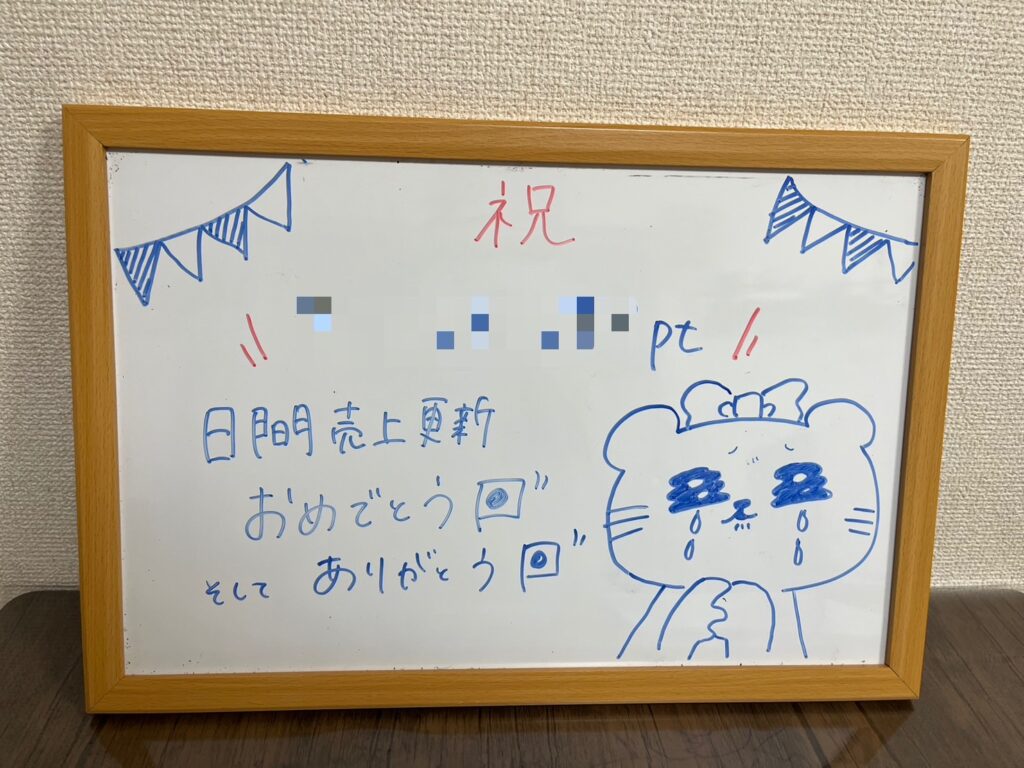 祝
pt
日間売上更新
おめでとう回"
そして ありがとう回"